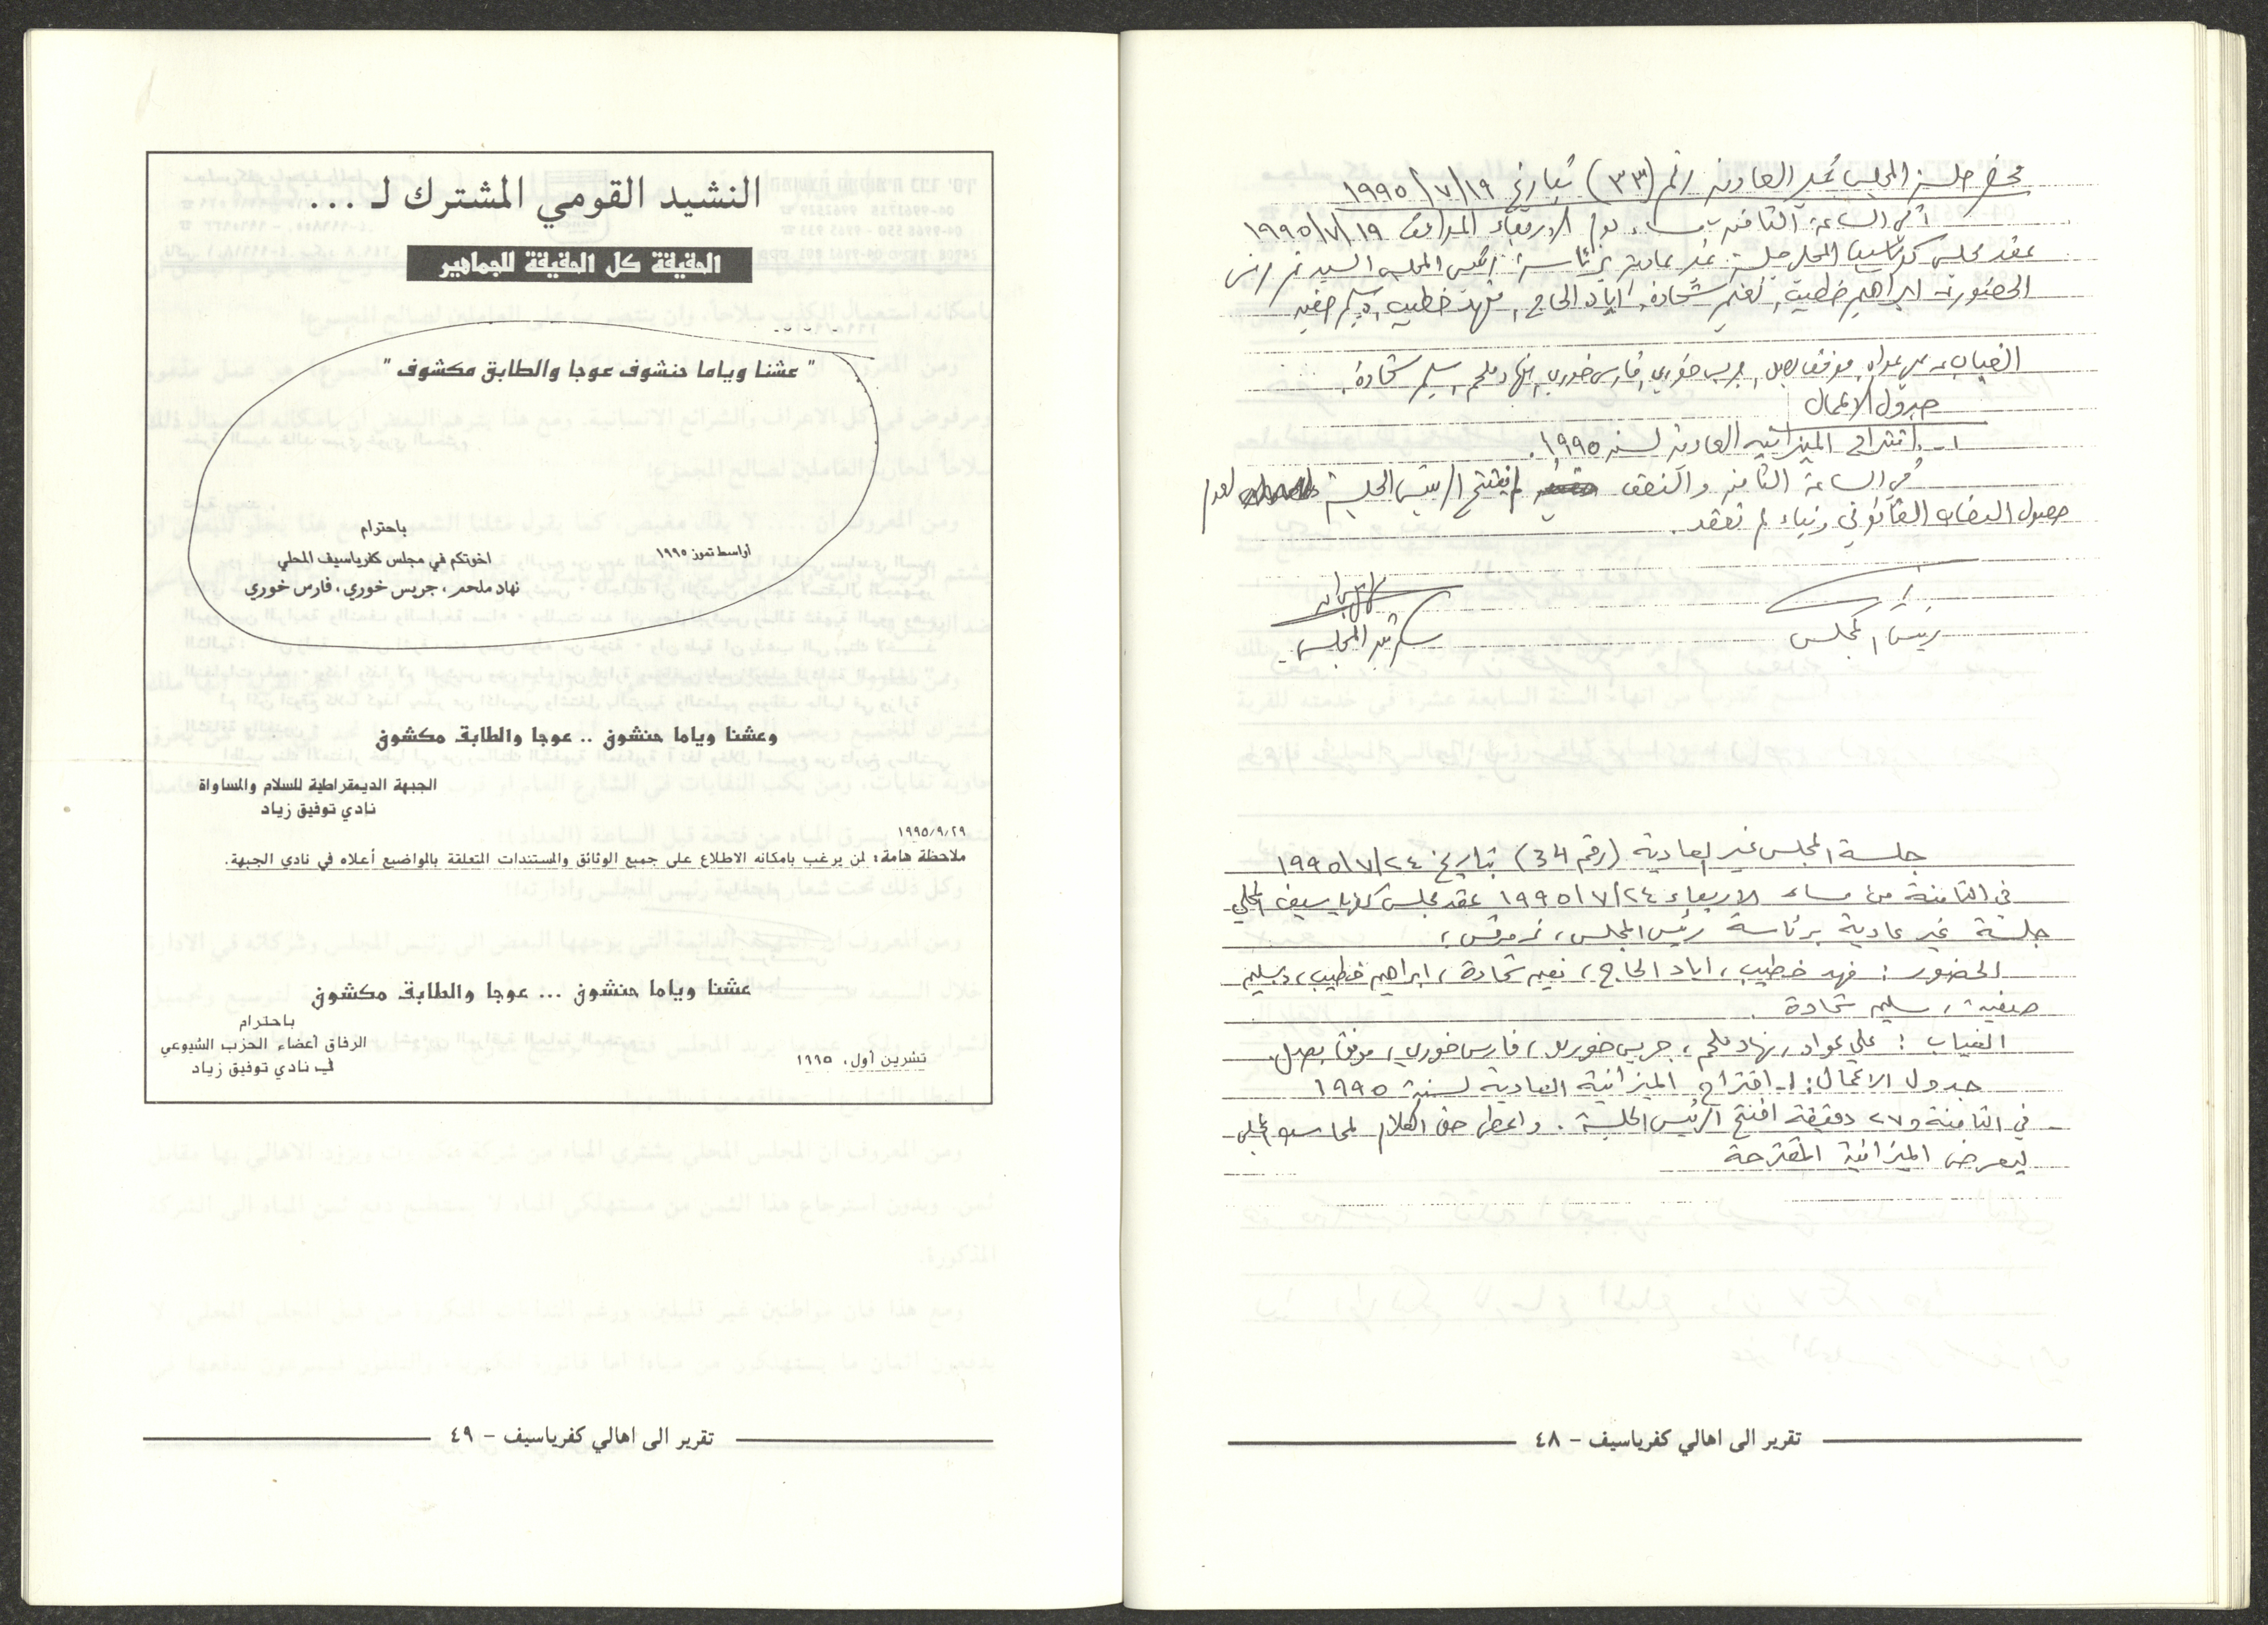 محضر جلسة المجلس غير العادية رقم (٣٣) بتاريخ ١٩٩٥/٧/١٩
في الساعة الثامنة مساء يوم الاربعاء الموافق ١٩٩٥/٧/١٩
عقد مجلس كفرياسيف المحلي جلسة غير عادية برئاسة رئيس المجلس السيد نمر مرقس
الحضور :- ابراهيم خطيب، نعيم شحادة، اياد الحاج، فهد خطيب، وسليم صفيه
الغياب :- علي عواد، موفق بصل، جريس خوري، فارس خوري، نهاد ملحم، سليم شحادة.
جدول الاعمال
١- اقتراح الميزانيه العادية لسنة ١٩٩٥.
في الساعة الثامنة والنصف لم يفتتح الرئيس الجلسة لعدم
حصول النصاب القانوني وبناء لم تعقد.
رئيس المجلس
سكرتير المجلس
جلسة المجلس غير العادية (رقم 34) بتاريخ ١٩٩٥/٧/٢٤
في الثامنة من مساء الاربعاء ١٩٩٥/٧/٢٤ عقد مجلس كفرياسيف المحلي
جلسة غير عادية برئاسة رئيس المجلس، نمر مرقس،
الحضور : فهد خطيب، اياد الحاج، نعيم شحادة، ابراهيم خطيب، وسليم
صفية، سليم شحادة
الغياب : علي عواد، نهاد ملحم، جريس خوري، فارس خوري، موفق بصل.
جدول الاعمال: ١- اقتراح الميزانية العادية لسنة ١٩٩٥
في الثامنة و٢٧ دقيقة افتتح الرئيس الجلسة. واعطى حق الكلام لمحاسب المجلس
ليعرض الميزانية المقترحة
تقرير الى اهالي كفرياسيف - ٤٨
النشيد القومي المشترك لـ ...
الحقيقة كل الحقيقة للجماهير
" عشنا وياما حنشوف عوجا والطابق مكشوف "
باحترام
اواسط تموز ١٩٩٥
اخوتكم في مجلس كفرياسيف المحلي
نهاد ملحم، جريس خوري، فارس خوري
وعشنا وياما حنشوف .. عوجا والطابق مكشوف
الجبهة الديمقراطية للسلام والمساواة
نادي توفيق زياد
١٩٩٥/٩/٢٩
ملاحظة هامة: لمن يرغب بامكانه الاطلاع على جميع الوثائق والمستندات المتعلقة بالمواضيع أعلاه في نادي الجبهة.
عشنا وياما حنشوف ... عوجا والطابق مكشوف
باحترام
الرفاق أعضاء الحزب الشيوعي
في نادي توفيق زياد
تشرين أول، ١٩٩٥
تقرير الى اهالي كفرياسيف - ٤٩